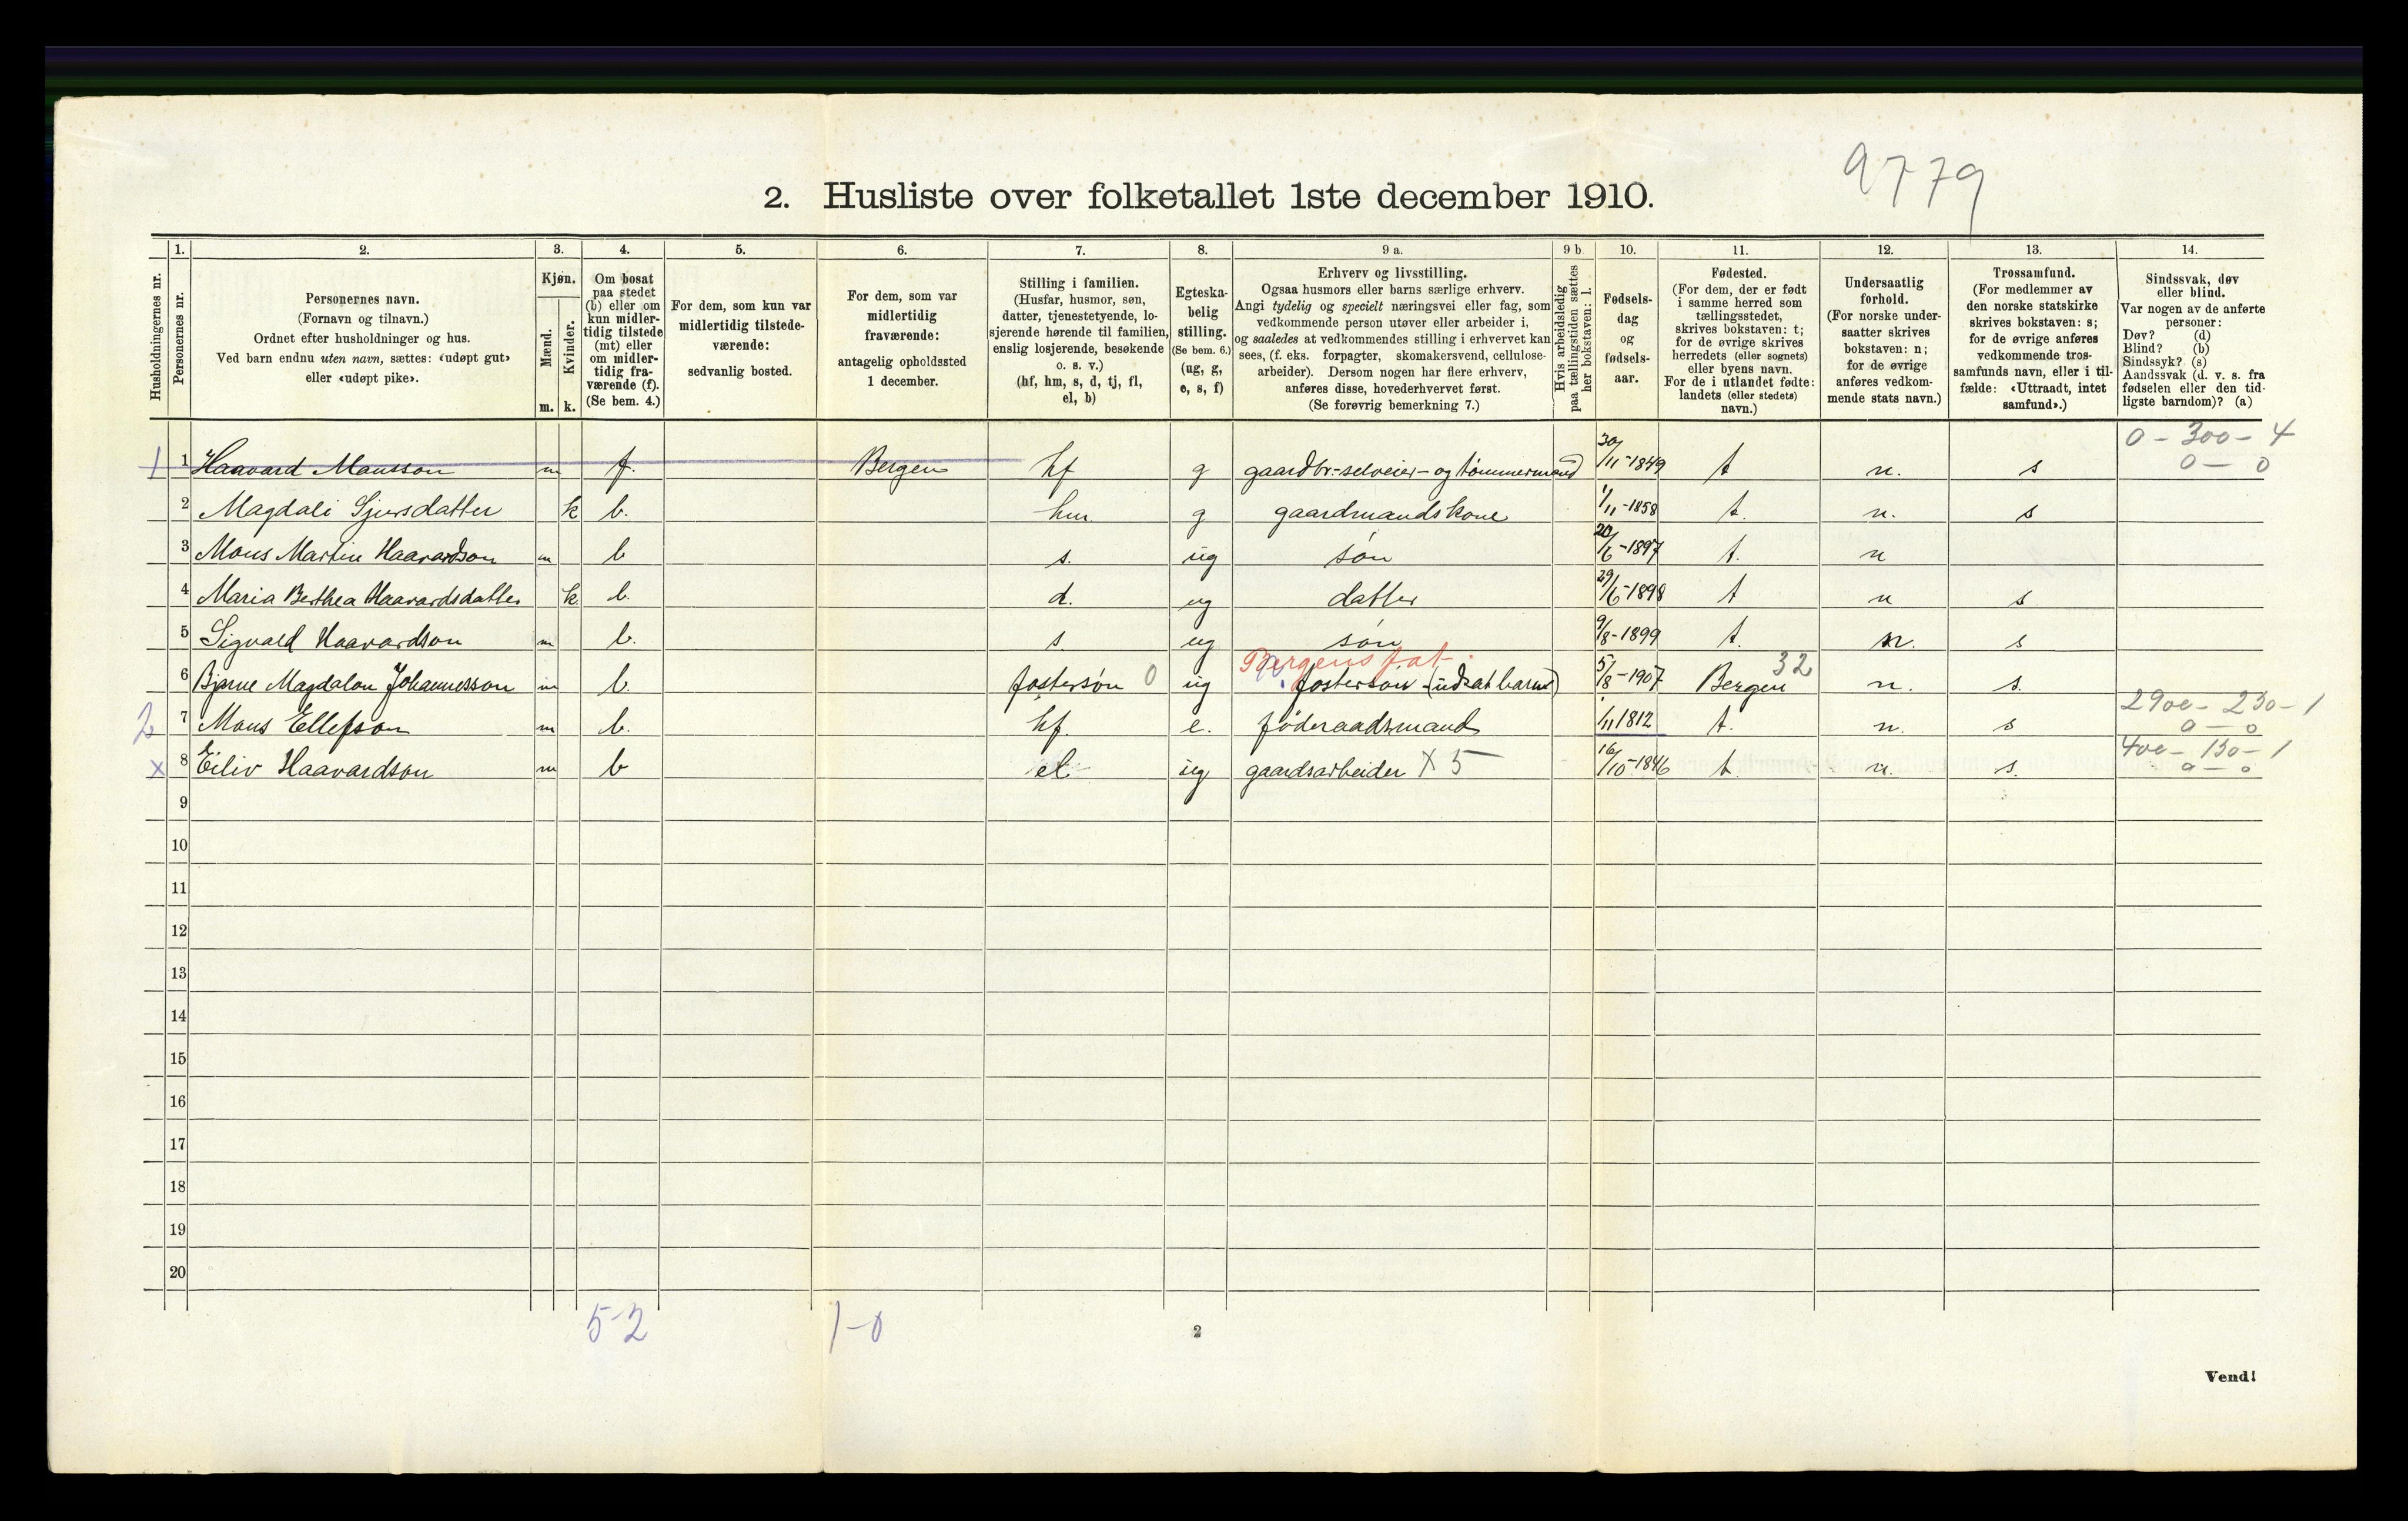 9779
2. Husliste over folketallet 1ste december 1910.
Husholdningernes nr.
1.
Personernes nr.
2.
Personernes navn.
(Fornavn og tilnavn.)
Ordnet efter husholdninger og hus.
Ved barn endnu uten navn, sættes: «udøpt gut»
eller «udøpt pike».
3.
Kjøn.
Mænd.
Kvinder.
m. k.
4.
Om bosat
paa stedet
(b) eller om
kun midler-
tidig tilstede
(mt) eller
om midler-
tidig fra-
værende (f).
(Se bem. 4.)
5.
For dem, som kun var
midlertidig tilstede-
værende:
sedvanlig bosted.
6.
For dem, som var
midlertidig
fraværende:
antagelig opholdssted
1 december.
7.
Stilling i familien.
(Husfar, husmor, søn,
datter, tjenestetyende, lo-
sjerende hørende til familien,
enslig losjerende, besøkende
o. s. v.)
(hf, hm, s, d, tj, fl,
el, b)
8.
Egteska-
belig
stilling.
(Se bem. 6.)
(ug, g,
e, s, f)
9 a.
Erhverv og livsstilling.
Ogsaa husmors eller barns særlige erhverv.
Angi tydelig og specielt næringsvei eller fag, som
vedkommende person utøver eller arbeider i,
og saaledes at vedkommendes stilling i erhvervet kan
sees, (f. eks. forpagter, skomakersvend, cellulose-
arbeider). Dersom nogen har flere erhverv,
anføres disse, hovederhvervet først.
(Se forøvrig bemerkning 7.)
9 b.
Hvis arbeidsledig
paa tællingstiden sættes
her bokstaven: l.
10.
Fødsels-
dag
og
fødsels-
aar.
11.
Fødested.
(For dem, der er født
i samme herred som
tællingsstedet,
skrives bokstaven: t;
for de øvrige skrives
herredets (eller sognets)
eller byens navn.
For de i utlandet fødte:
landets (eller stedets)
navn.)
12.
Undersaatlig
forhold.
(For norske under-
saatter skrives
bokstaven: n;
for de øvrige
anføres vedkom-
mende stats navn.)
13.
Trossamfund.
(For medlemmer av
den norske statskirke
skrives bokstaven: s;
for de øvrige anføres
vedkommende tros-
samfunds navn, eller i til-
fælde: «Uttraadt, intet
samfund».)
14.
Sindssvak, døv
eller blind.
Var nogen av de anførte
personer:
Døv? (d)
Blind? (b)
Sindssyk? (s)
Aandssvak (d. v. s. fra
fødselen eller den tid-
ligste barndom)? (a)
0 - 300 - 4
1 1 Haavard Monsson m f. Bergen hf g gaardbr.-selveier- og tømmermand 30/11-1849 t n. s 0 - 0
2 Magdali Sjursdatter k b. hm g gaardmandskone 1/11-1858 t. n. s
3 Mons Martin Haavardson m b s. ug søn 20/6-1897 t. n
4 Maria Berthea Haavardsdatter k b. d. ug datter 29/6-1898 t n s
5 Sigvald Haavardson m b. s. ug søn 9/8-1899 t. n. s
Bergens fat.
6 Bjarne Magdalon Johannesson m b. fostersøn 0 ug fostersøn (udsat barn) 5/8-1907 Bergen 32 n. s.
2900 - 230 - 1
2 7 Mons Ellefson m b. hf. e. føderaadsmand 1/11 1812 t. n. s 0 - 0
400 - 130 - 1
x 8 Eiliv Haavardson m b el ug gaardsarbeider x 5 16/10-1846 t. n. s. 0 - 0
9
10
11
12
13
14
15
16
17
18
19
20
5-2 1-0
2
Vend!